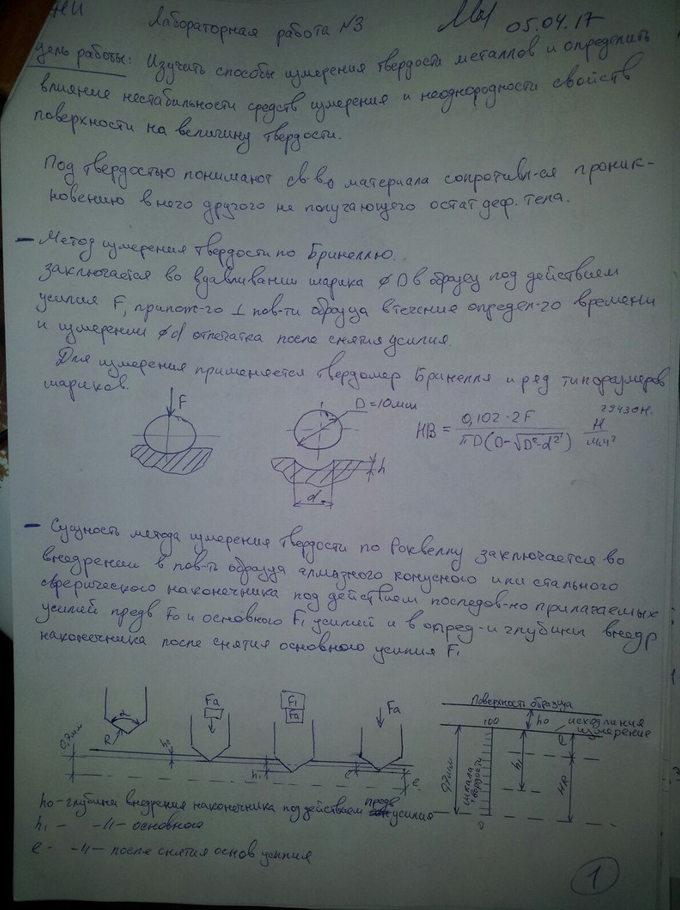 НИ Лабораторная работа №3 05.04.17
Цель работы: Изучить способы измерения твердости металлов и определить
влияние нестабильности средств измерения и неоднородности свойств
поверхности на величину твердости.
Под твердостью понимают св-во материала сопротивл-ся проник-
новению в него другого не получающего остат деф. тела.
– Метод измерения твердости по Бринеллю.
заключается во вдавливании шарика ⌀ D в образец под действием
усилия F, прилож-го ⊥ пов-ти образца в течение определ-го времени
и измерении ⌀d отпечатка после снятия усилия.
Для измерения применяется твердомер Бринелля и ряд типоразмеров
шариков.
F
D=10мм
HB = 0,102·2F / πD(D-√D²-d²) Н/мм²
29430Н.
h
d
– Сущность метода измерения твердости по Роквеллу заключается во
внедрении в пов-ть образца алмазного конусного или стального
сферического наконечника под действием последов-но прилагаемых
усилий предв F₀ и основного F₁ усилий и в опред-и глубины внедр
наконечника после снятия основного усилия F₁
α Fа F₁ Fа Fа
R h₀ h₁ e e
0,2мм
Поверхность образца
100 h₀ исход линия
измерения
0,2мм шкала твердости h₁ e HR
0
h₀ - глубина внедрения наконечника под действием предв усилия
h₁ - -//- основного
e - -//- после снятия основ усилия
1